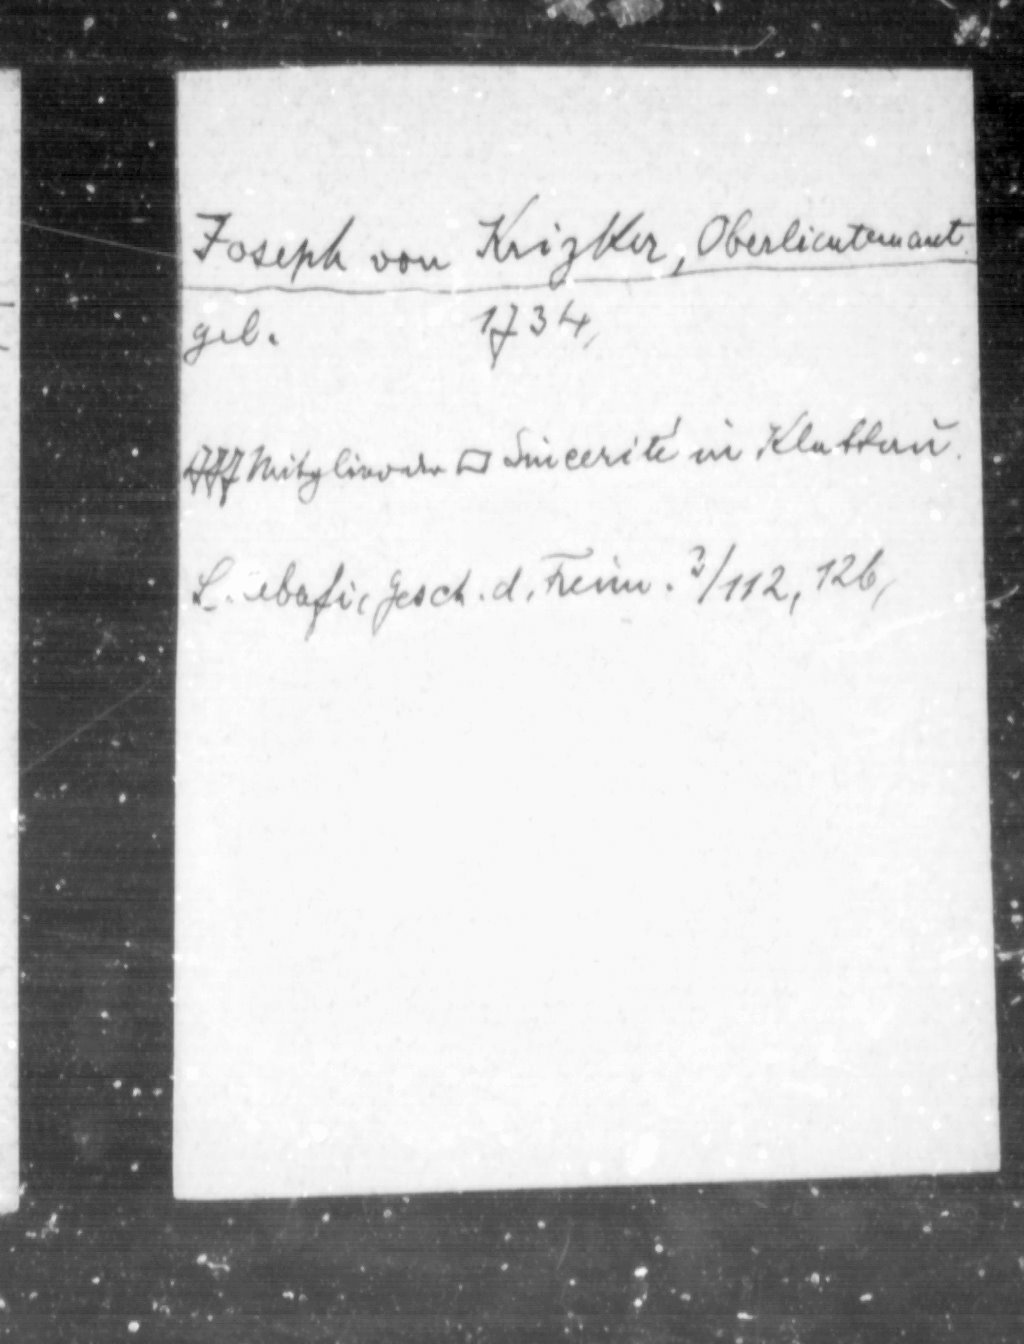 Joseph von Krizker, Oberlieutenant.
geb. 1734,
777 Mitglied der □ Sincerité in Klattau.
Gesch. d. Freim. 2/112, 126,